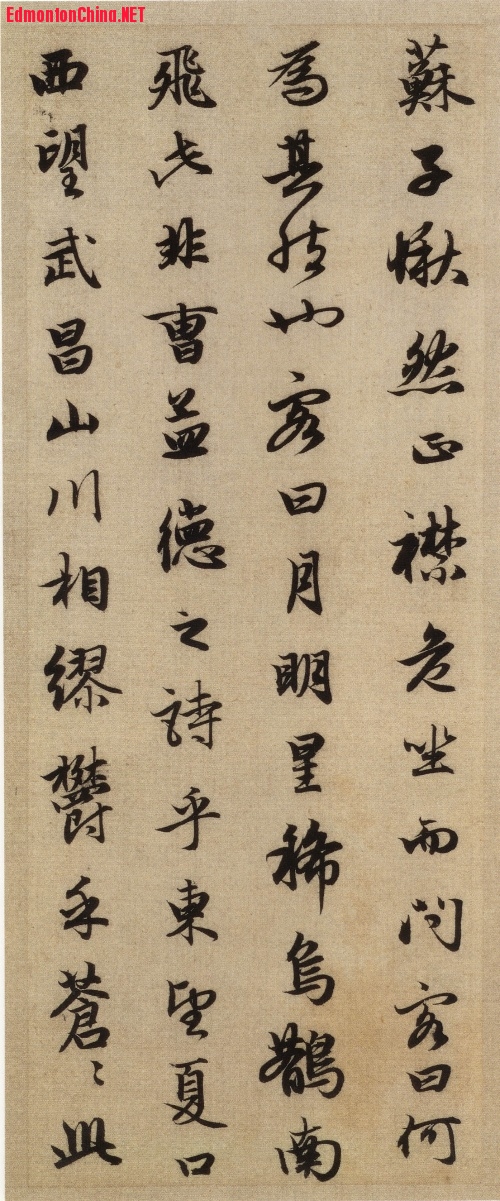 EdmontonChina.NET
蘇子愀然正襟危坐而問客曰何
為其然也客曰月明星稀烏鵲南
飛此非曹孟德之詩乎東望夏口
西望武昌山川相繆鬱乎蒼〻此